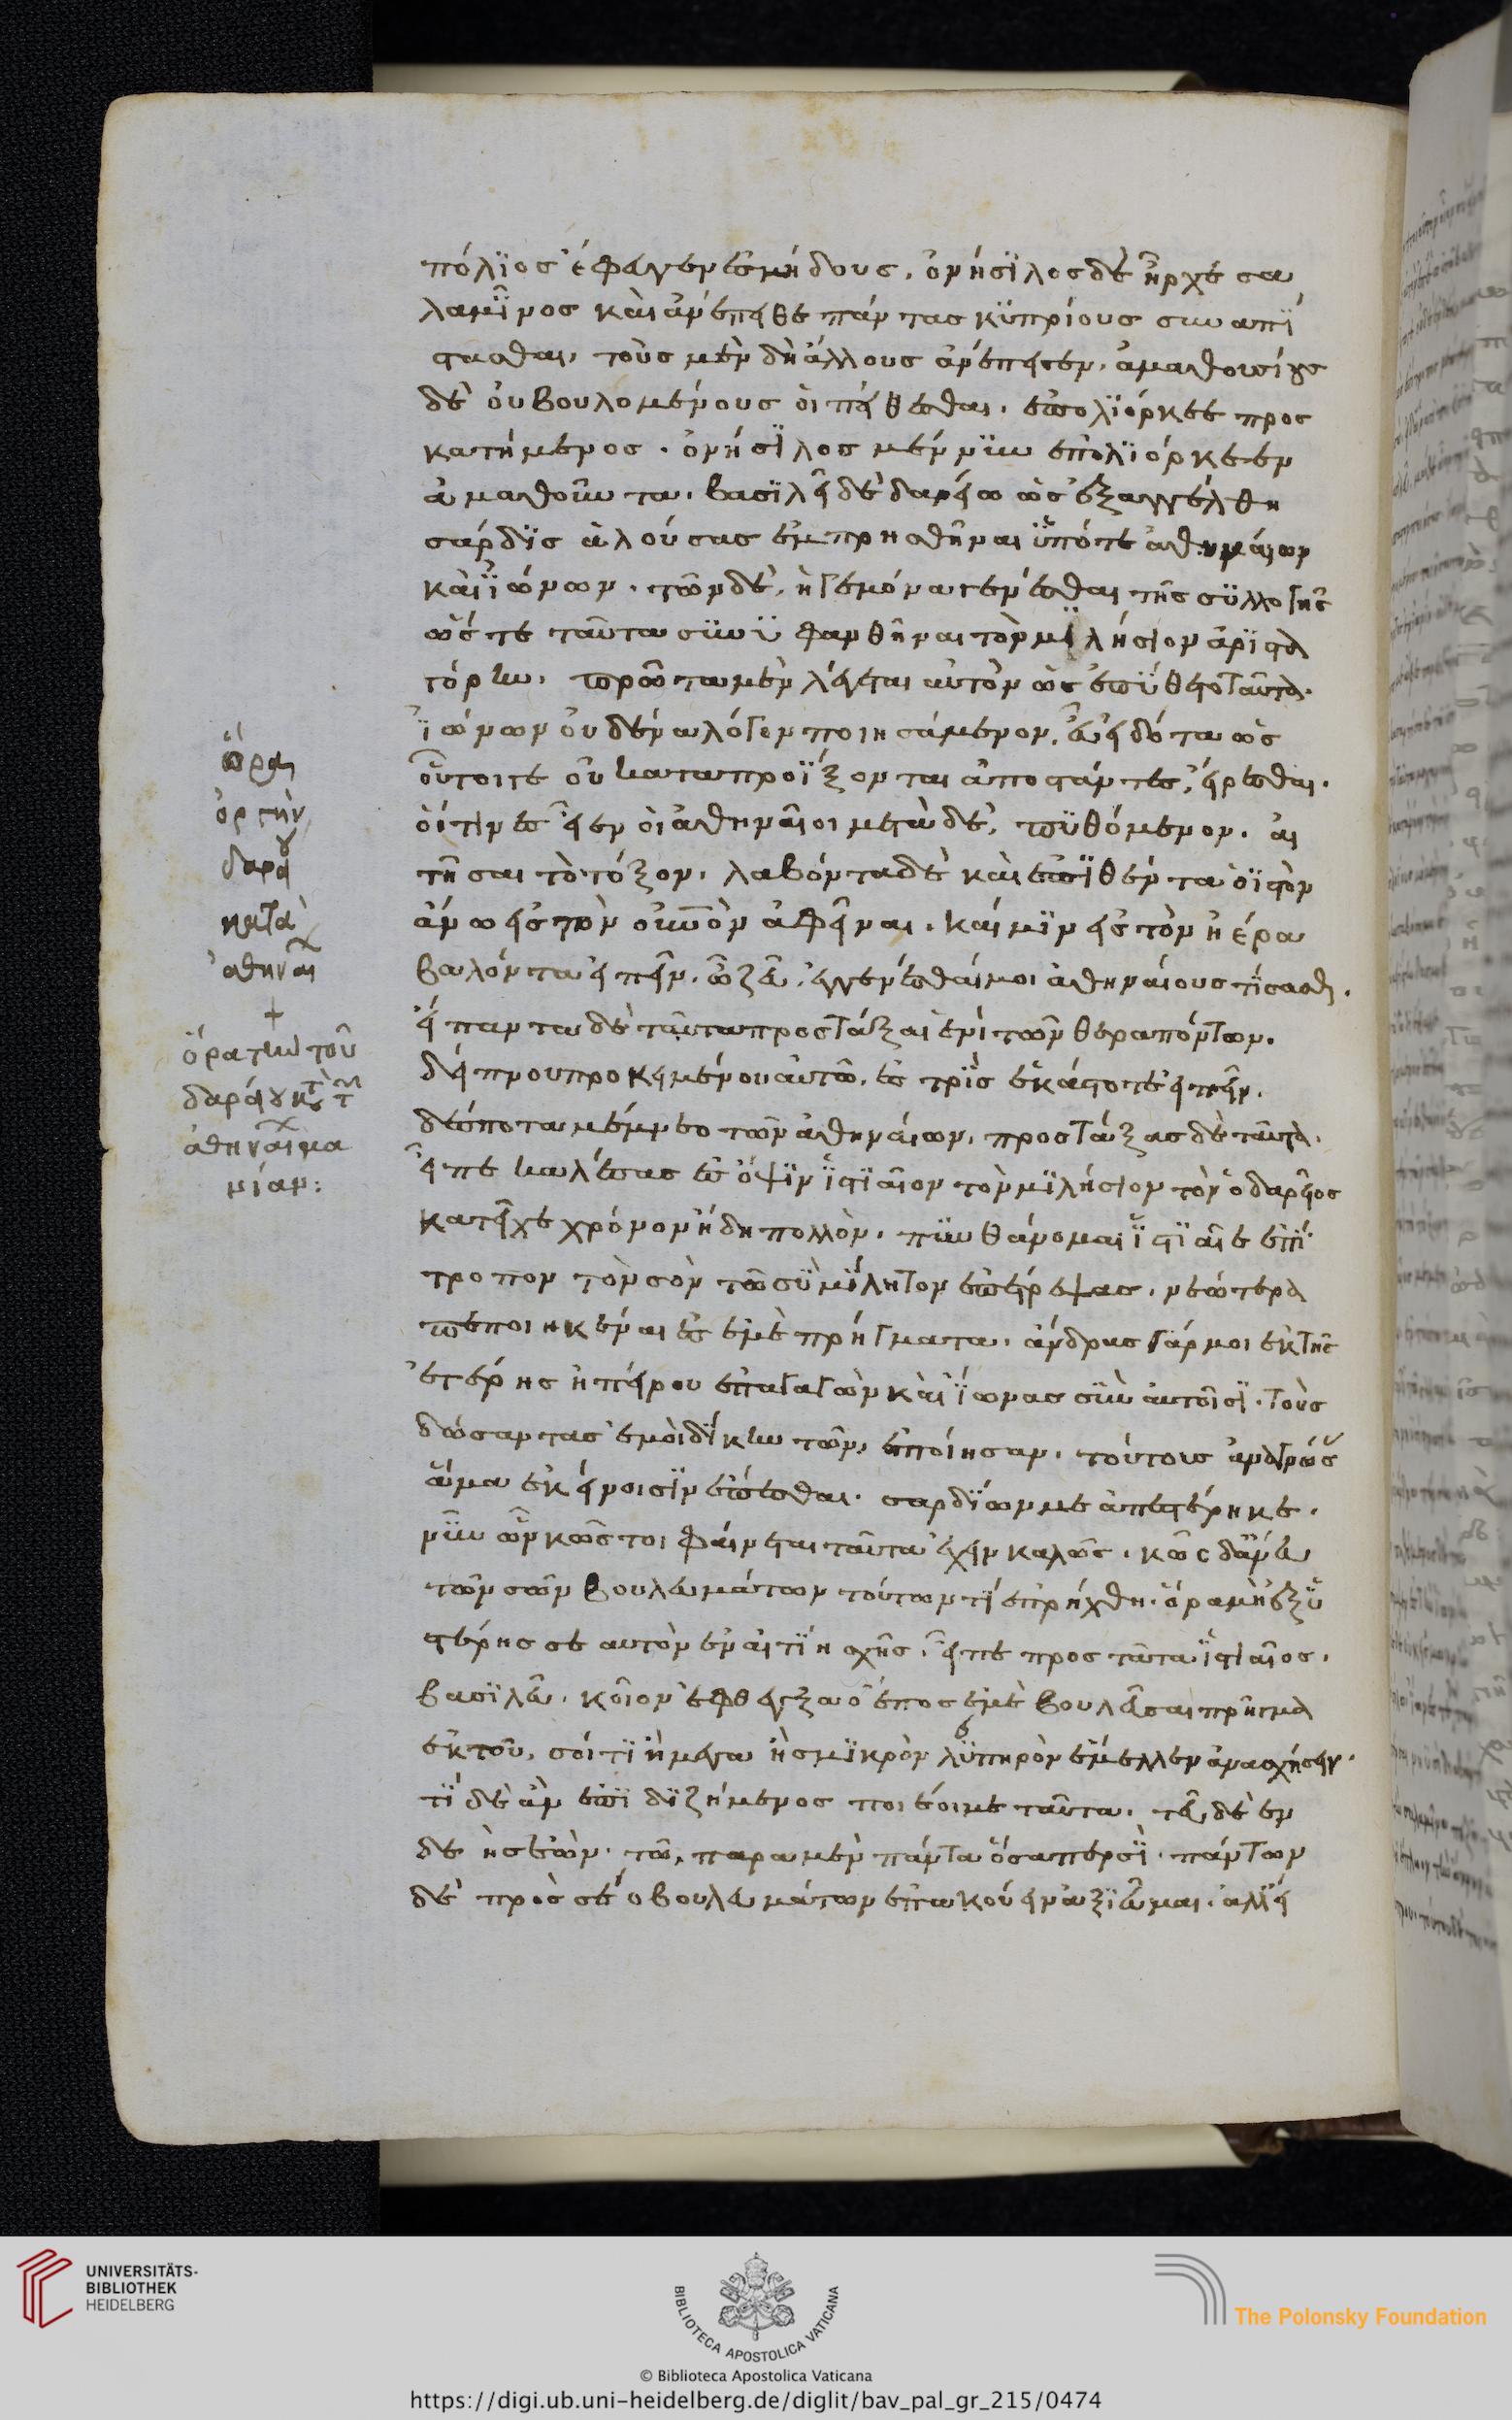 πόλϊος ἔφευγεν ἐς μήδους. ὀνήσϊλος δὲ ἦρχε σα
λαμῖνος καὶ ἀνέπειθε πάντας κϋπρίους συναπϊ
στασθαι. τοὺς μὲν δὴ ἄλλους ἀνέπεισεν. ἀμαθουσίους
δὲ οὐ βουλομένους οἱ πείθεσθαι. ἐπολϊόρκεε προσ
κατήμενος. ὀνήσϊλος μέν νϋν ἐπολϊόρκεεν
ἀμαθοῦντα. βασϊλεῖ δὲ δαρείω ὡς ἐξαγγέλθη
σάρδϊς ἁλούσας ἐμπρησθῆναι ϋπό τε ἀθηναίων
καὶ ϊώνων. τῶν δὲ, ἡγεμόνα γενέσθαι τῆς συλλογῆς
ὥστε ταῦτα συνϋφανθῆναι τὸν μϊλήσιον ἀρϊστα
γόρην. πρῶτα μὲν λέγεται αὐτὸν ὡς ἐπύθετο ταῦτα.
ϊώνων οὐδένα λόγον ποιησάμενον. εὖ εἰδότα ὡς
οὗτοί γε οὐ καταπροΐξονται ἀποστάντες, εἴρεσθαι.
οἵτινες εἶεν οἱ ἀθηναῖοι μετὰ δὲ, πϋθόμενον. αἰ
τῆσαι τὸ τόξον. λαβόντα δὲ καὶ ἐπϊθέντα ὀϊστὸν
ἄνω εἰς τὸν οὐνὸν ἀφεῖναι. καί μϊν εἰς τὸν ἠέρα
βαλόντα εἰπεῖν. ὦ ζεῦ, ἐγγενέσθαι μοι ἀθηναίους τίσασθαι.
εἴπαντα δὲ ταῦτα προστάξαι ἑνὶ τῶν θεραπόντων.
δείπνου προκειμένου αὐτῶ, ἐς τρὶς ἑκάστοτε εἰπεῖν.
δέσποτα μέμνεο τῶν ἀθηναίων. προστάξας δὲ ταῦτα.
εἶπε καλέσας ἐς ὄψϊν ϊστϊαῖον τὸν μϊλήσιον τὸν ὁ δαρεῖος
κατεῖχε χρόνον ἤδη πολλὸν. πϋνθάνομαι ϊστϊαῖε ἐπί
τροπον τὸν σὸν τῶ σὺ μίλητον ἐπέτρεψας. νεώτερα
πεποιηκέναι ἐς ἐμὲ πρήγματα. ἄνδρας γάρ μοι ἐκ τῆς
ἑτέρης ἠπείρου ἐπαγαγὼν καὶ ϊωνας σὺν αὐτοῖσϊ. τοὺς
δώσαντας ἐμοὶ δίκην τῶν, ἐποίησαν. τούτους ἀναγνώσας
ἅμα ἐκείνοισϊν ἕπεσθαι. σαρδίων με ἀπεστέρηκε.
νῦν ὦν κῶς τοι φαίνεται ταῦτα ἔχειν καλῶς. κῶς δ' ἄνευ
τῶν σῶν βουλευμάτων τούτων τϊ ἐπρήχθη. ὅρα μὴ ἐξϋ
στέρης σε αυτὸν ἐν αἰτίη σχῇς. εἶπε προς ταῦτα ϊστιαῖος.
βασϊλεῦ. κοῖον ἐφθέγξαο ἔπος ἐμὲ βουλεῦσαι πρῆγμα
ἐκ τοῦ, σοί τϊ ἢ μέγα ἢ σμϊκρὸν λϋπηρὸν ἔμελλεν ἀνασχήσειν.
τί δ' ἂν ἐπϊδϊζήμενος ποιέοιμϊ ταῦτα. τεῦ δὲ ἐν
δεὴς ἐὼν. τῶ, παρα μὲν πάντα ὅσαπερ σϊ. πάντων
δὲ πρὸς σέο βουλευμάτων ἐπακούειν ἀξιεῦμαι. ἀλλ' εἴ
ὅρα
ὀργὴν
δαρείου
κατὰ
ἀθηναίων
+
ὅρα τὴν τοῦ
δαρείου κατὰ τῶν
ἀθηναίων μα
νίαν:
UNIVERSITÄTS-
BIBLIOTHEK
HEIDELBERG
BIBLIOTECA APOSTOLICA VATICANA
The Polonsky Foundation
© Biblioteca Apostolica Vaticana
https://digi.ub.uni-heidelberg.de/diglit/bav_pal_gr_215/0474